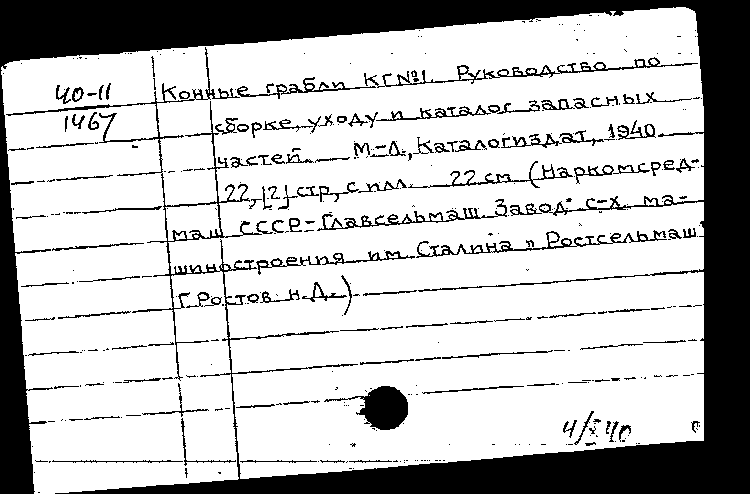 40-11
1467
Конные грабли КГ№1. Руководство по
сборке, уходу и каталог запасных
частей. М.-Л., Каталогиздат, 1940.
22, [2] стр, с илл. 22 см (Наркомсред-
маш СССР-Главсельмаш. Завод с-х. ма-
шиностроения им. Сталина „Ростсельмаш"
Г. Ростов н.Д.)
4/X 40